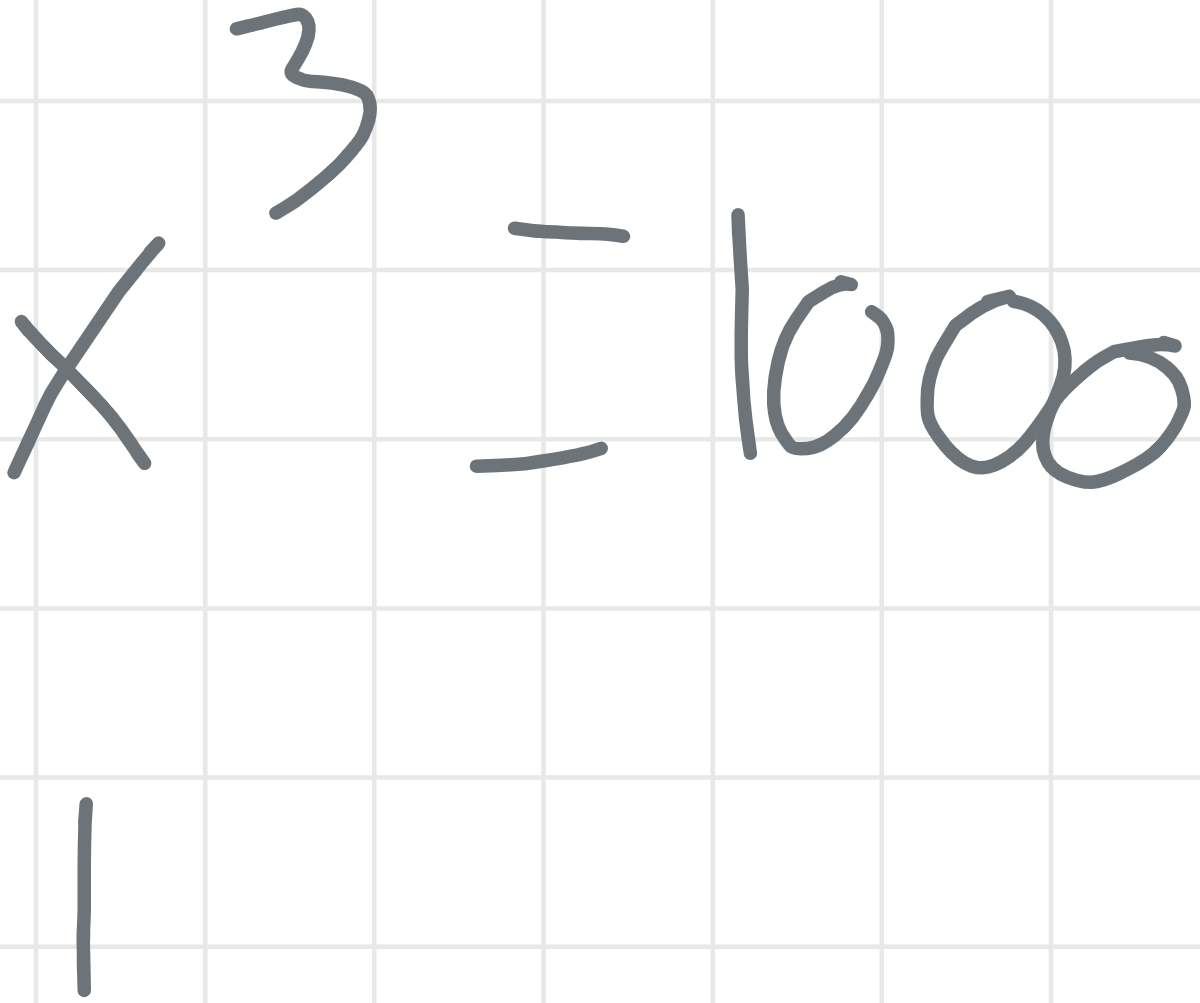 x³ = 1000
1